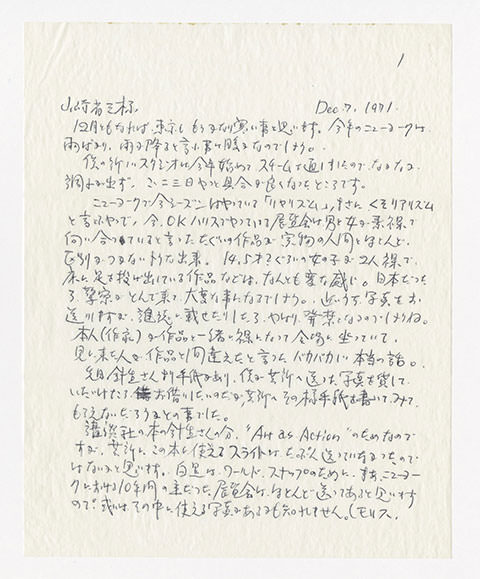 1
山崎省三様 Dec. 7, 1971.
12月ともなれば、東京も もうかなり寒い事と思います。今年のニューヨークは、
雨ばかり、雨が降ると言う事は暖かなのでしょう。
僕の新しいスタジオは今年始めて スチームを通しましたので、なかなか
調子が出ず、ここ二三日やっと具合が良くなったところです。
ニューヨークで今シーズンはやっている「リヤリズム」、すごくそりアリズム
と言うやつで、今、OKハリスでやっている展覧会は男と女が素裸で
向い合っていると言ったたぐいの作品が実物の人間とほとんど
区別がつかない様な出来。14,5才ぐらいの女の子が2人裸で、
床に足を投げ出している作品などは、なんとも変な感じ。日本だった
ら警察がとんで来て、大変な事になるでしょう。近いうち写真をお
送りしますが、雑誌に載せたりしたら、やはり、発禁になるのでしょうね。
本人(作家)が作品と一緒に裸になって会場に坐っていて、
見に来た人が作品と間違えたと言う、バカバカしい本当の話。
先日針生さんより手紙があり、僕が芸新へ送った写真を貸して
いただけたら お借りしたいのだが芸新へその様手紙を書いてみて
もらえないだろうかとの事でした。
講談社の本の針生さんの分、"Art as Action" のためなので
すが、芸新に、この本に使えるスライドは、たぶん送っていなかったので
はないかと思います。白黒は、ワールド、スナップのために、ニューヨー
クにおける10年間の主だった、展覧会は、ほとんど送ってあると思います
ので、或いは、その中に使える写真があるかも知れません。(モリス、